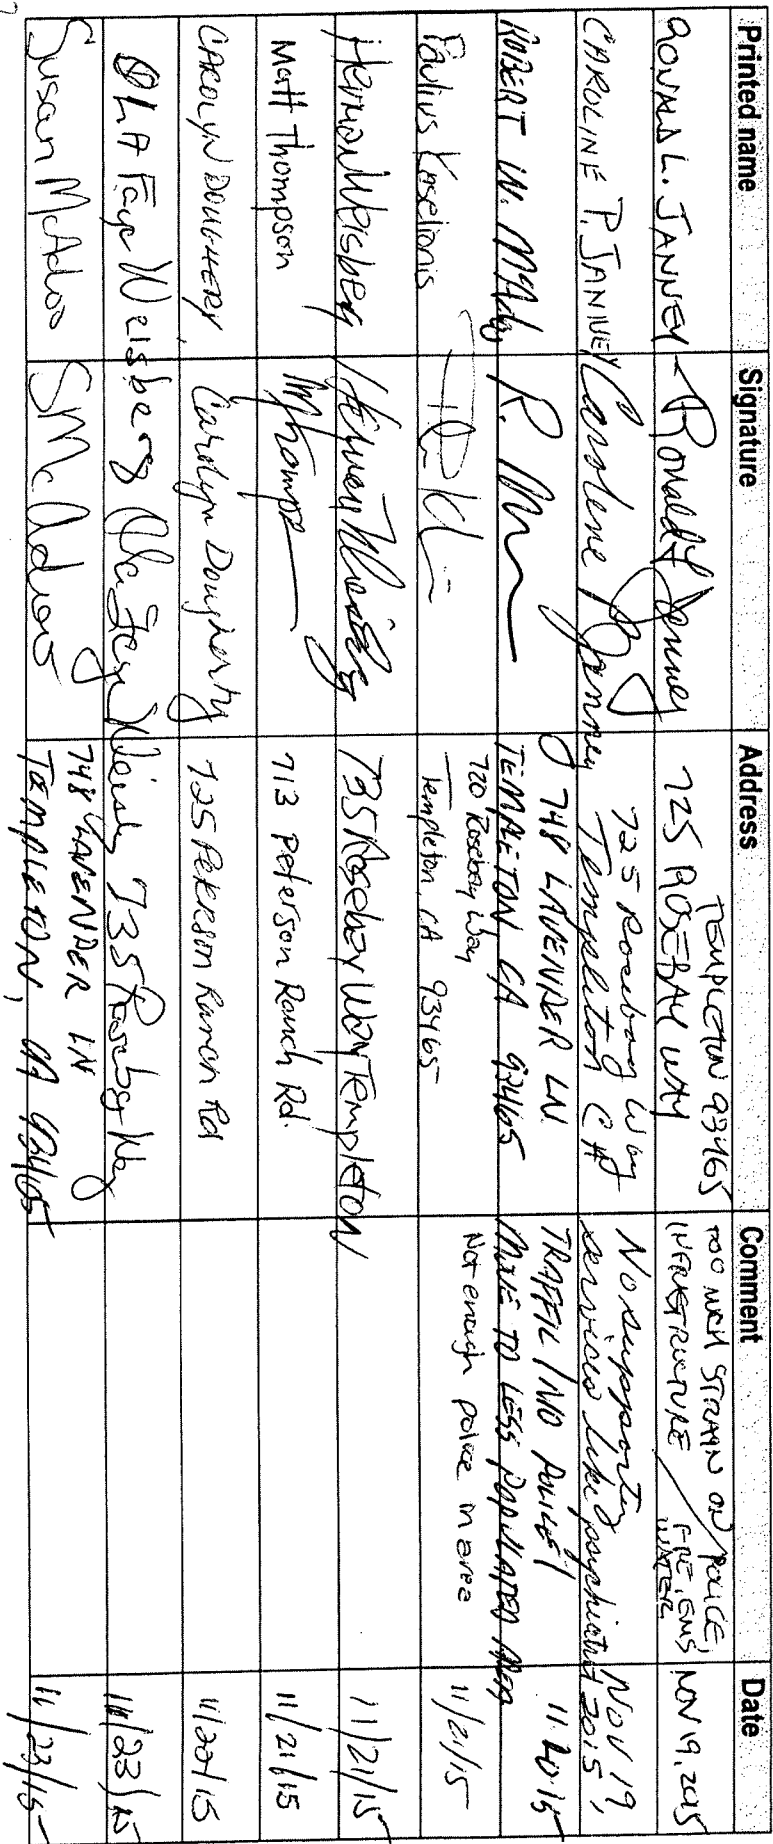 Printed name Signature Address Comment Date
RONALD L. JANNEY Ronald L Janney TEMPLETON 93465
725 ROSEBAY WAY TOO MUCH STRAIN ON POLICE,
INFRASTRUCTURE / FIRE, EMS
WATER NOV 19, 2015
CAROLINE P. JANNEY Caroline P Janney 725 Rosebay Way
Templeton CA No supporting
services like psychiatrist NOV 19
2015,
ROBERT W. R. 748 LAVENDER LN
TEMPLETON, CA 93465 TRAFFIC / NO POLICE!
MOVE TO LESS POPULATED AREA 11.20.15
Paulius Kaselionis 720 Rosebay Way
Templeton, CA 93465 Not enough police in area 11/21/15
Herman Weisberg Herman Weisberg 735 Rosebay Way Templeton 11/21/15
Matt Thompson 713 Peterson Ranch Rd. 11/21/15
CAROLYN DOUGHERTY Carolyn Dougherty 725 Peterson Ranch Rd 11/22/15
Ola Faye Weisberg Ola Faye Weisberg 735 Rosebay Way 11/23/15
Susan McAdoo SMcAdoo 748 LAVENDER LN
TEMPLETON, CA 93465 11/23/15